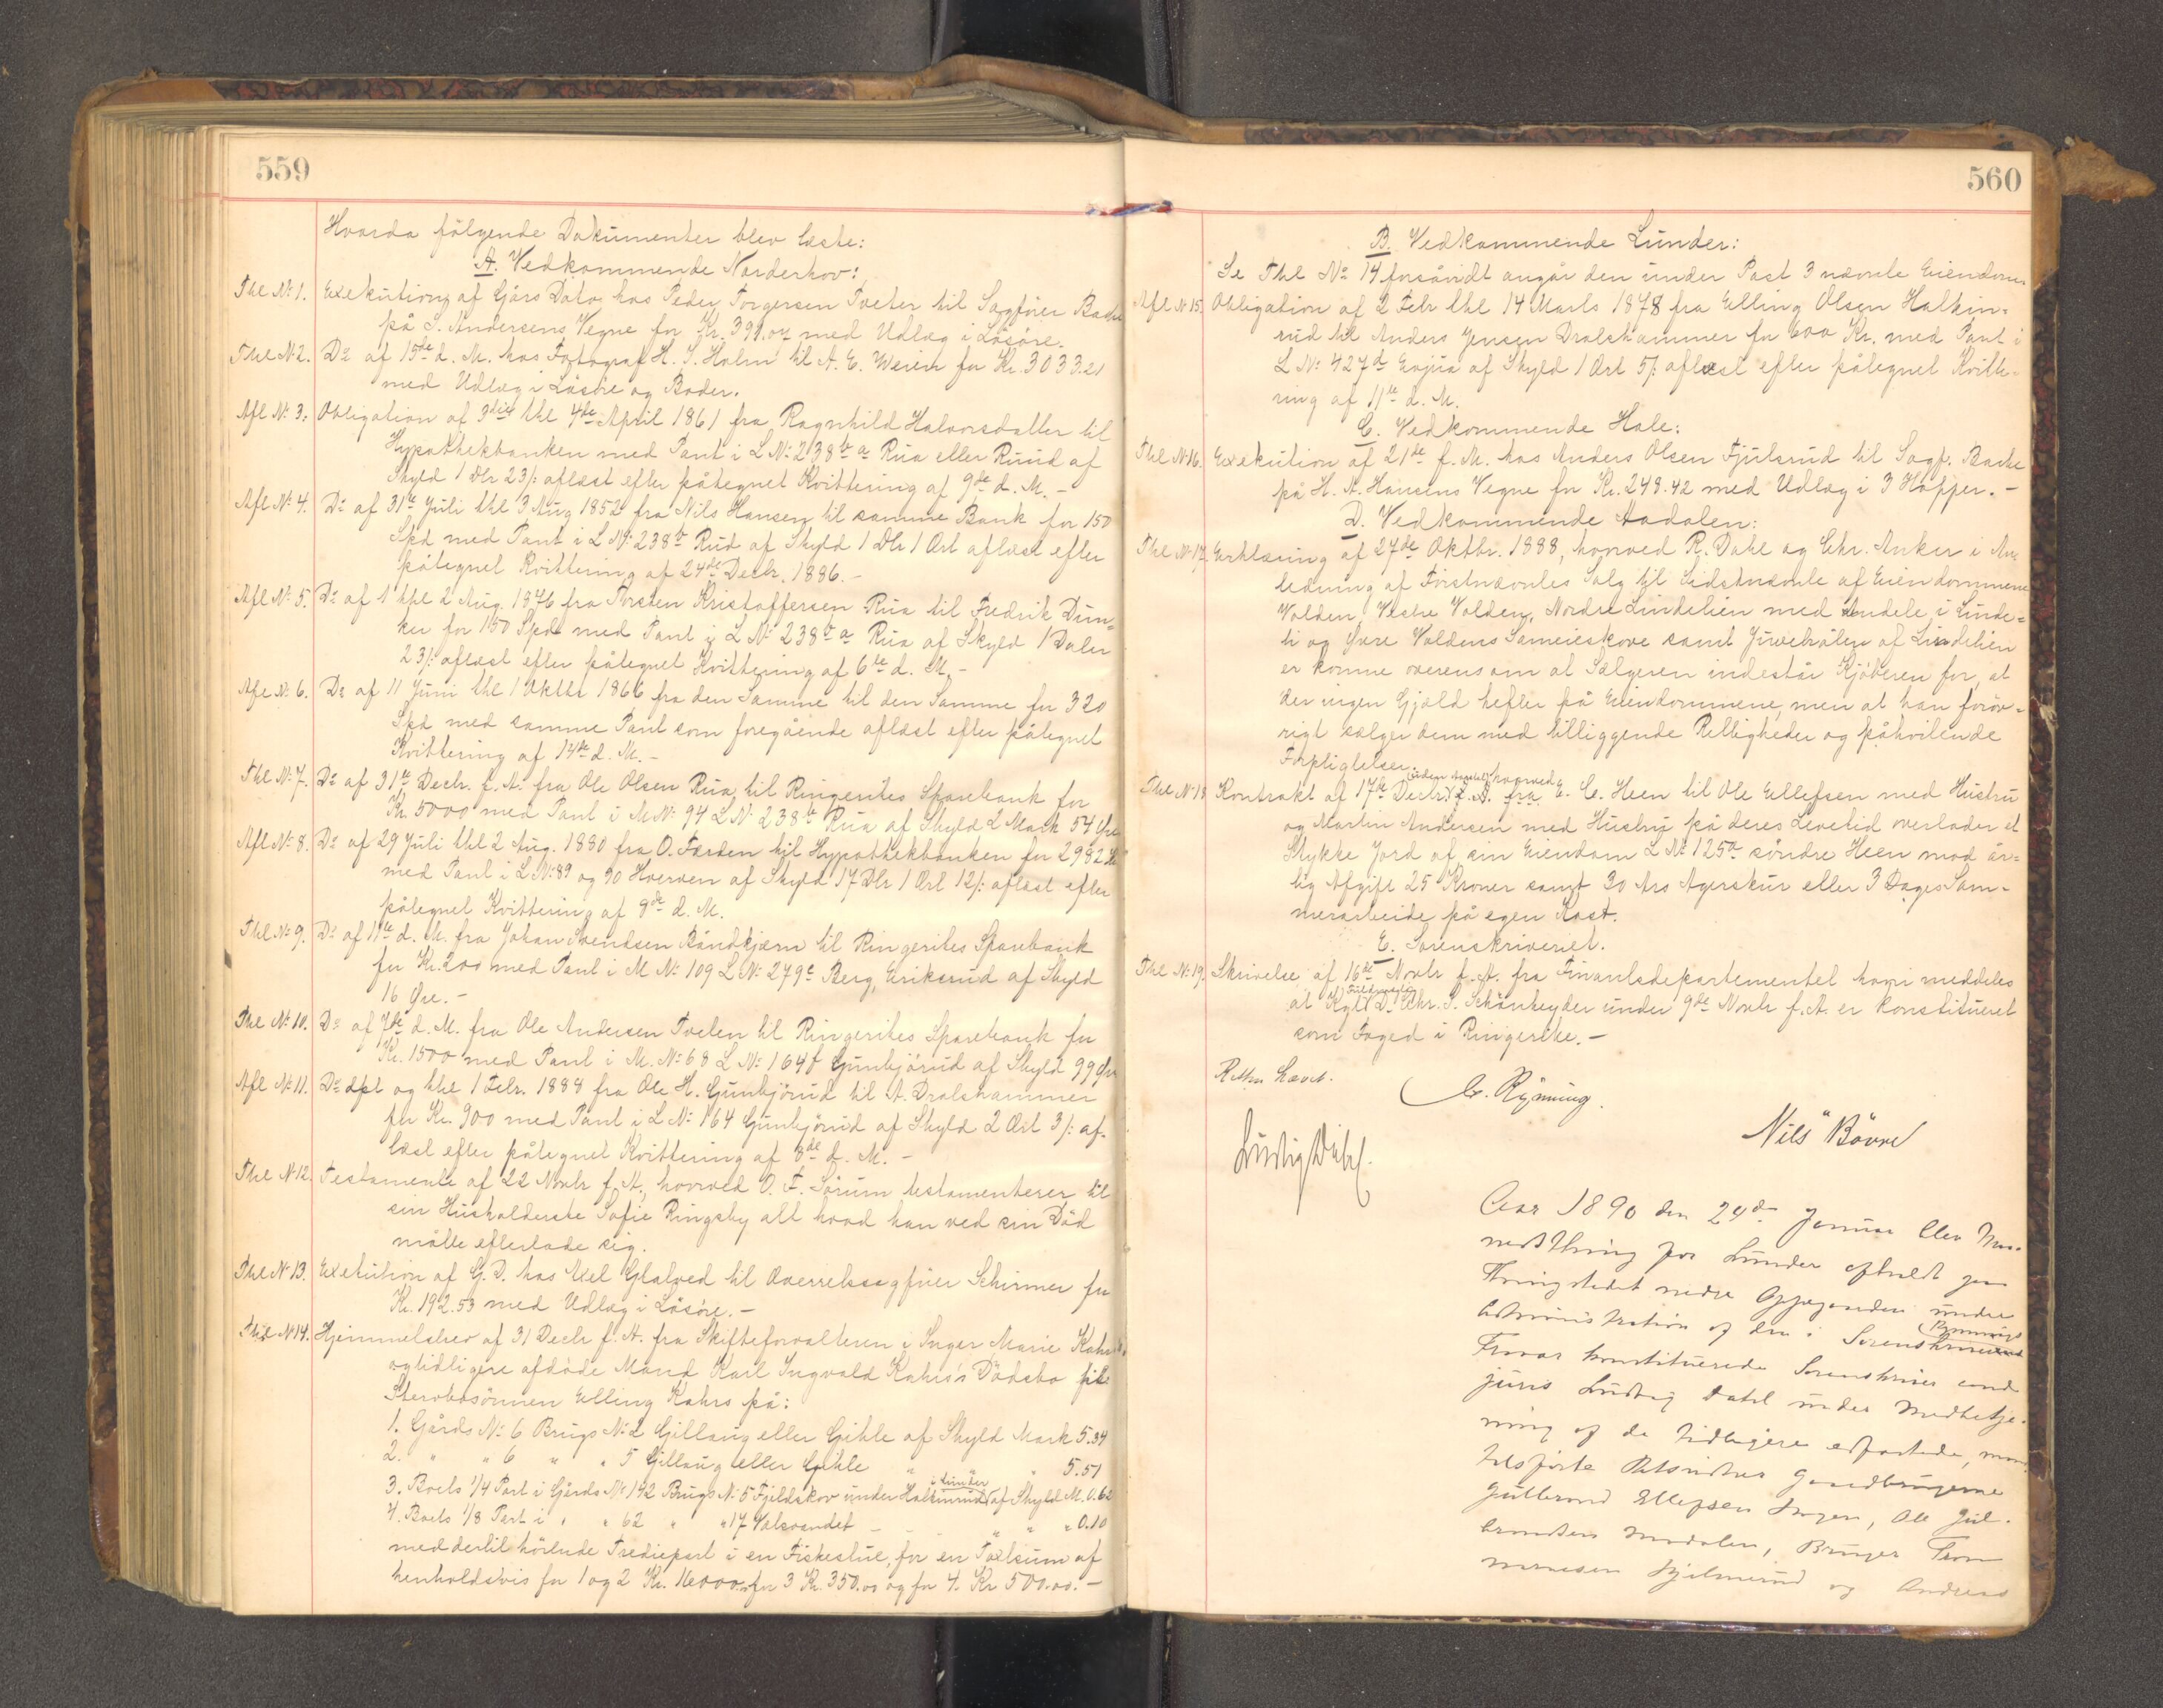 559
Hvorda följgende Dokumenter blev læste:
A. Vedkommende Norderhov:
Thl. No 1. Exekution af Gårs Dato hos Peder Torgersen Tveter til Sagfører Bache
på S. Andersens Vegne for Kr. 391.04 med Udlæg i Løsöre.
Thl. No 2. Do af 15de d. M. hos Fotograf H. S. Holm til A. E. Weien for Kr. 3033.21
med Udlæg i Løsöre og Boder.
Afl No 3. Obligation af 3die thl 4de April 1861 fra Ragnhild Halvorsdatter til
Hypothekbanken med Pant i L No 238b a Rua eller Ruud af
Skyld 1 Dlr 23 /: aflæst efter påtegnet Kvittering af 9de d. M. -
Afl No 4. Do af 31te Juli thl 3 Aug 1852 fra Nils Hansen til samme Bank for 150
Spd med Pant i L No 238b Rud af Skyld 1 Dlr 1 Ort aflæst efter
påtegnet Kvittering af 24de Decbr. 1886. -
Afl No 5. Do af 1 thl 2 Aug. 1876 fra Torsten Kristoffersen Rua til Fredrik Dun-
ker for 150 Spd med Pant i L No 238b a Rua af Skyld 1 Daler
23 /: aflæst efter påtegnet Kvittering af 6te d. M. -
Afl No 6. Do af 11 Juni thl 1 Oktbr 1866 fra den Samme til den Samme for 320
Spd med samme Pant som foregående aflæst efter påtegnet
Kvittering af 14de d. M. -
Thl No 7. Do af 31te Decbr. f. A. fra Ole Olsen Rua til Ringerikes Sparebank for
Kr. 5000 med Pant i M No 94 L No 238b Rua af Skyld 2 Mark 54 Øre
Afl No 8. Do af 29 Juli thl 2 Aug. 1880 fra O. Færden til Hypothekbanken for 2982 Kr
med Pant i L No 89 og 90 Hverven af Skyld 17 Dlr 1 Ort 12 /: aflæst efter
påtegnet Kvittering af 9de d. M.
Thl No 9. Do af 11te d. M. fra Johan Svendsen Båndkjærn til Ringerikes Sparebank
for Kr. 200 med Pant i M No 109 L No 279c Berg, Eriksrud af Skyld
16 Øre. -
Thl No 10. Do af 7de d. M. fra Ole Andersen Tvelen til Ringerikes Sparebank for
Kr. 1500 med Pant i M. No 68 L No 164b Gunbjörud af Skyld 99 Øre
Afl No 11. Do dat og thl 1 Febr. 1888 fra Ole H. Gunbjörud til A. Dralshammer
for Kr. 900 med Pant i L No 164 Gunbjörud af Skyld 2 Ort 3 /: af-
læst efter påtegnet Kvittering af 8de d. M. -
Thl No 12. Testamente af 22 Novbr f. A., hvorved O. F. Sörum testamenterer til
sin Husholderske Sofie Ringsby alt hvad han ved sin Död
måtte efterlade sig.
Thl No 13. Exekution af G. D. hos Axel Glatved til Overretssagfører Schirmer for
Kr. 192.53 med Udlæg i Løsöre. -
Thl No 14. Hjemmelsbrev af 31 Decbr f. A. fra Skifteforvalteren i Inger Marie Kahrs
og tidligere afdöde Mand Karl Ingvald Kahrs's Dödsbo til
Stervbosönnen Elling Kahrs på:
1. Gårds No 6 Brugs No 2 Gillaug eller Gihle af Skyld Mark 5.34
2. " " 6 " " 5 Gillaug eller Gihle " " " 5.51
3. Boets 1/4 Part i Gårds No 142 Brugs No 5 Fjeldskov under Halkinrud i Lunder af Skyld M. 0.62
4. Boets 1/8 Part i " " 62 " " 17 Valsvandet - " " " 0.10
med dertil hörende Trediepart i en Fiskestue, for en Taxtsum af
henholdsvis for 1 og 2 Kr. 16000.- for 3 Kr. 350.00 og for 4. Kr 500.00. -
560
B. Vedkommende Lunder:
Se Thl No 14 forsåvidt angår den under Post 3 nævnte Eiendom.
Afl No 15. Obligation af 2 Febr thl 14 Marts 1878 fra Elling Olsen Halkin-
rud til Anders Jensen Dralshammer for 600 Kr. med Pant i
L No 427d Enjua af Skyld 1 Ort 5 /: aflæst efter påtegnet Kvitte-
ring af 11te d. M.
C. Vedkommende Hole:
Thl No 16. Exekution af 21de f. M. hos Anders Olsen Fjulsrud til Sagf. Bache
på H. A. Hansens Vegne for Kr. 248.42 med Udlæg i 3 Hopper. -
D. Vedkommende Aadalen:
Thl No 17. Erklæring af 27de Oktbr. 1888, hvorved R. Dahl og Chr. Anker i An-
ledning af Förstnævntes Salg til Sidstnævnte af Eiendommene
Volden, Vestre Volden, Nordre Lindelien med Andele i Linde-
li og Övre Voldens Sameieskove samt Juvebråten af Lindelien
er komne overens om at Sælgeren indestår Kjöberen for, at
der ingen Gjæld hefter på Eiendommene, men at han foröv-
rigt sælger dem med tilliggende Rettigheder og påhvilende
Forpligtelser.
Thl No 18 Kontrakt af 17de Decbr. f. A. fra hvorved E. C. Heen til Ole Ellefsen med Hustru
og Martin Andersen med Hustru på deres Levetid overlader et
Stykke Jord af sin Eiendom L No 125a söndre Heen mod år-
lig Afgift 25 Kroner samt 30 Års Agerskur eller 3 Dages Som-
merarbeide på egen Kost.
E. Sorenskriveriet.
Thl No 19. Skrivelse af 16de Novbr f. A. fra Finantsdepartementet hvori meddeles
at Kgl. Fuldmægtig D. Chr. S. Schönheyder under 9de Novbr f. A. er konstitueret
som Foged i Ringerike. -
Retten hævet.
C. Rynning.
Nils Bövre
Ludvig Dahl.
Aar 1890 den 24de Januar blev Maa-
nedsthing for Lunder afholdt paa
Thingstedet nedre Oppegaarden under
Administration af den i Sorenskriver Rynnings
Fravær konstituerede Sorenskriver cand.
juris Ludvig Dahl under Medbetje-
ning af de tidligere edfæstede, man-
talsførte Retsvidner Gaardbrugerne
Gulbrand Ellefsen Hagen, Ole Gul-
brandsen Moodalen, Bruger
Hjelmerud og Andreas